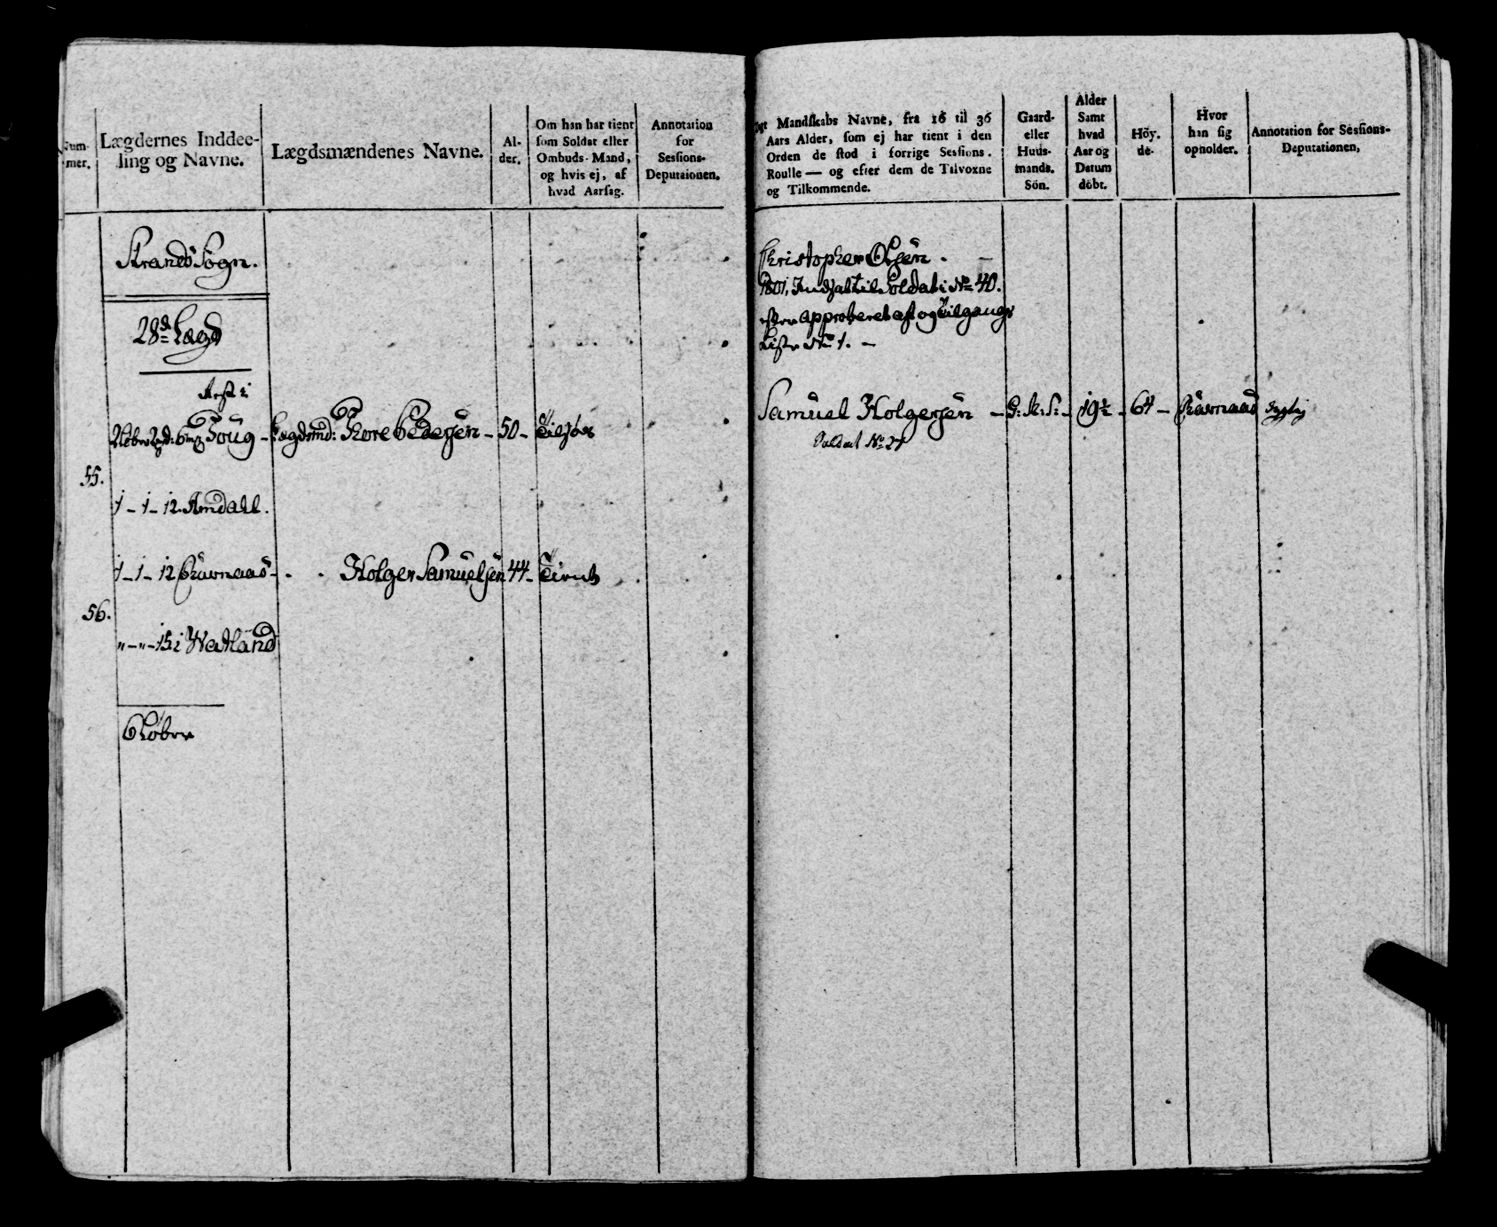 Num-
mer.
Lægdernes Inddee-
ling og Navne.
Lægdsmændenes Navne.
Al-
der.
Om han har tient
som Soldat eller
Ombuds-Mand,
og hvis ej, af
hvad Aarsag.
Annotation
for
Sessions-
Deputaionen.
Strands Sogn.
28de Lægd
Rest i
Toug - Lægdsmd: Tore Pedersen - 50 -
55.
1 - 1 - 12 Amdahl.
1 - 1 - 12 - Holger Samuelsen 44 - Tient
56.
" - " - 15 i Watland
Mandskabs Navne, fra 16 til 36
Aars Alder, som ej har tient i den
Orden de stod i forrige Sessions.
Roulle — og efter dem de Tilvoxne
og Tilkommende.
Gaard-
eller
Huus-
mands.
Sön.
Alder
Samt
hvad
Aar og
Datum
döbt.
Höy.
de.
Hvor
han sig
opholder.
Annotation for Sessions-
Deputationen,
Christopher Olsen. -
1801, Indsat til Soldat i No 40.
approberet af og Tilgangs
Liste No 1. -
Samuel Holgersen - G: M: S: - 19½ - 64 -
Soldat No 27